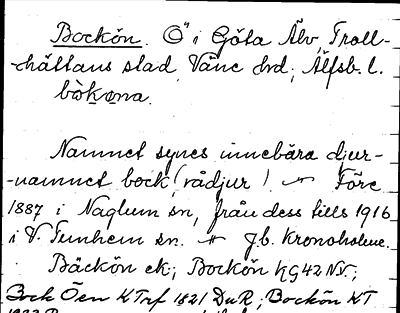 Bockön. Ö i Göta Älv, Troll-
-hättans stad, Väne hrd, Älfsb. l.
bòkøna.
Namnet synes innebära djur-
-namnet bock (rådjur). Före
1887 i Naglum sn, från dess tills 1916
i V. Tunhem sn. Jb. Kronoholme.
Bäckön ek; Bockön hG42NV;
Bock Öen KTrf 1821 DuR; Bockön KT